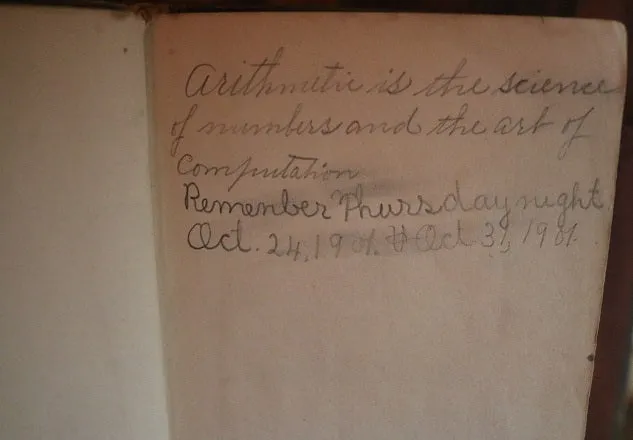 Arithmetic is the science
of numbers and the art of
Computation
Remember Thursday night
Oct. 24, 1901. & Oct 31, 1901.